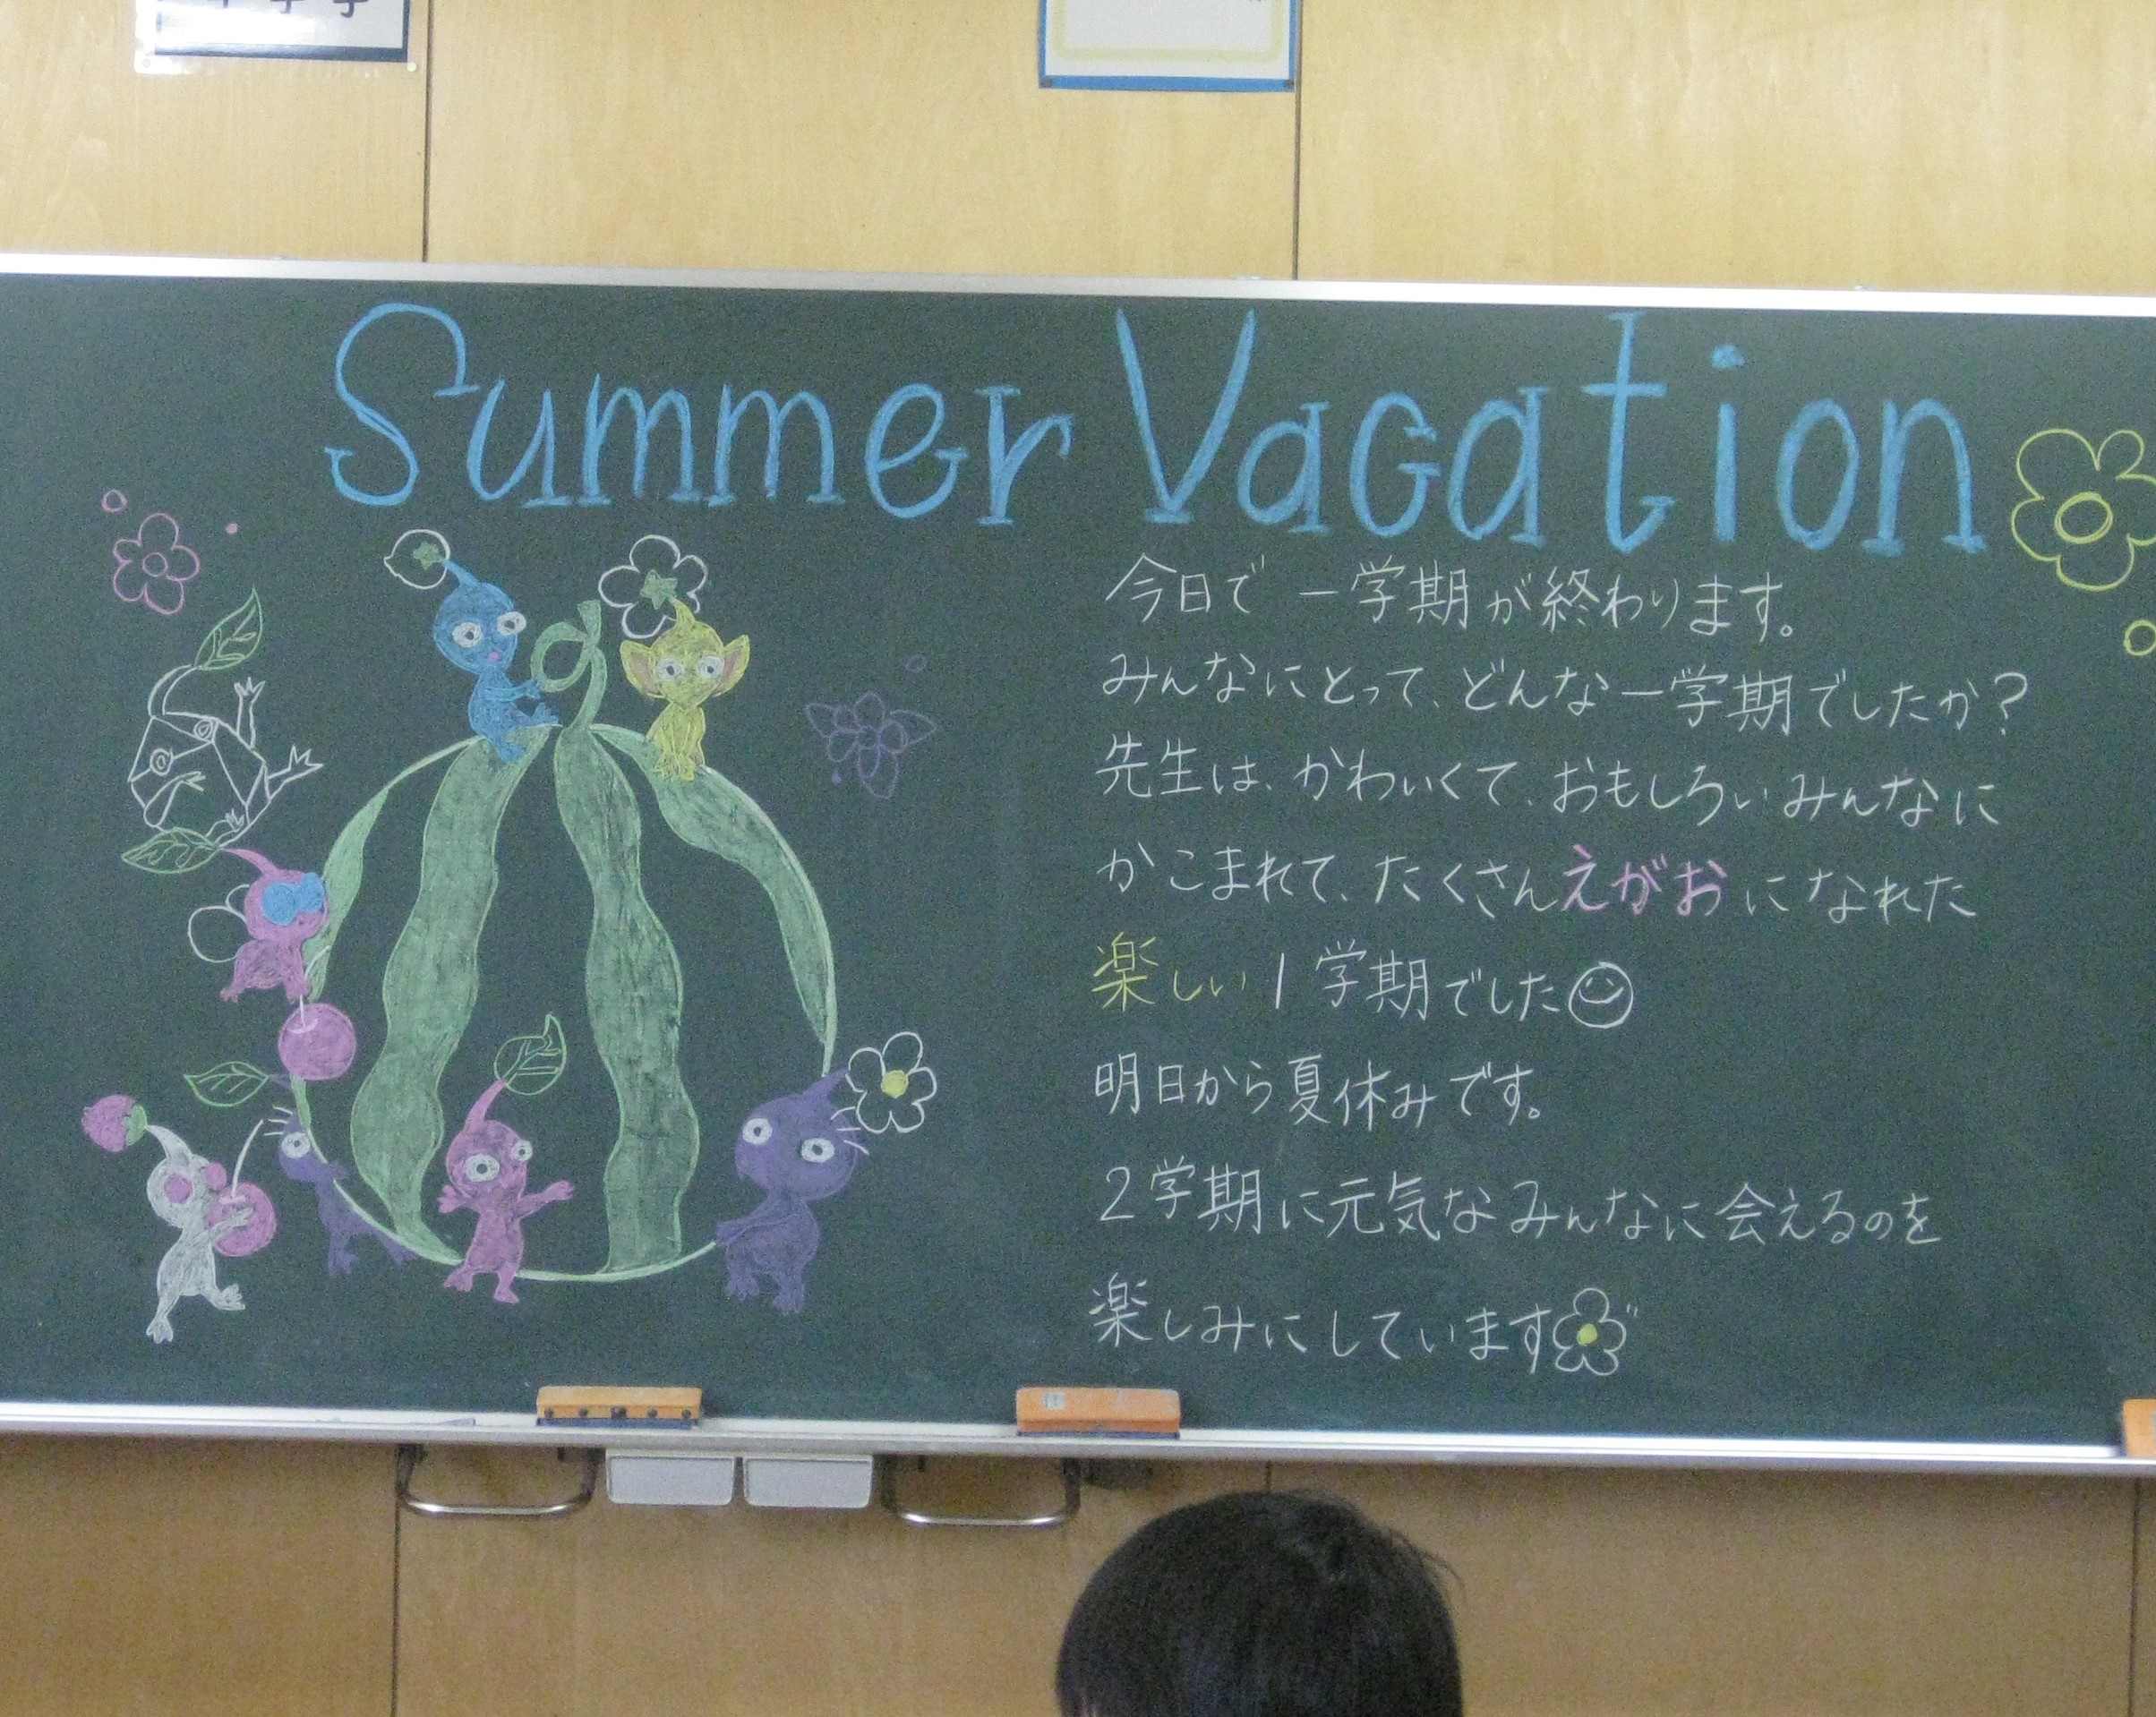 Summer Vacation
今日で一学期が終わります。
みんなにとって、どんな一学期でしたか?
先生は、かわいくて、おもしろいみんなに
かこまれて、たくさんえがおになれた
楽しい1学期でした
明日から夏休みです。
2学期に元気なみんなに会えるのを
楽しみにしています